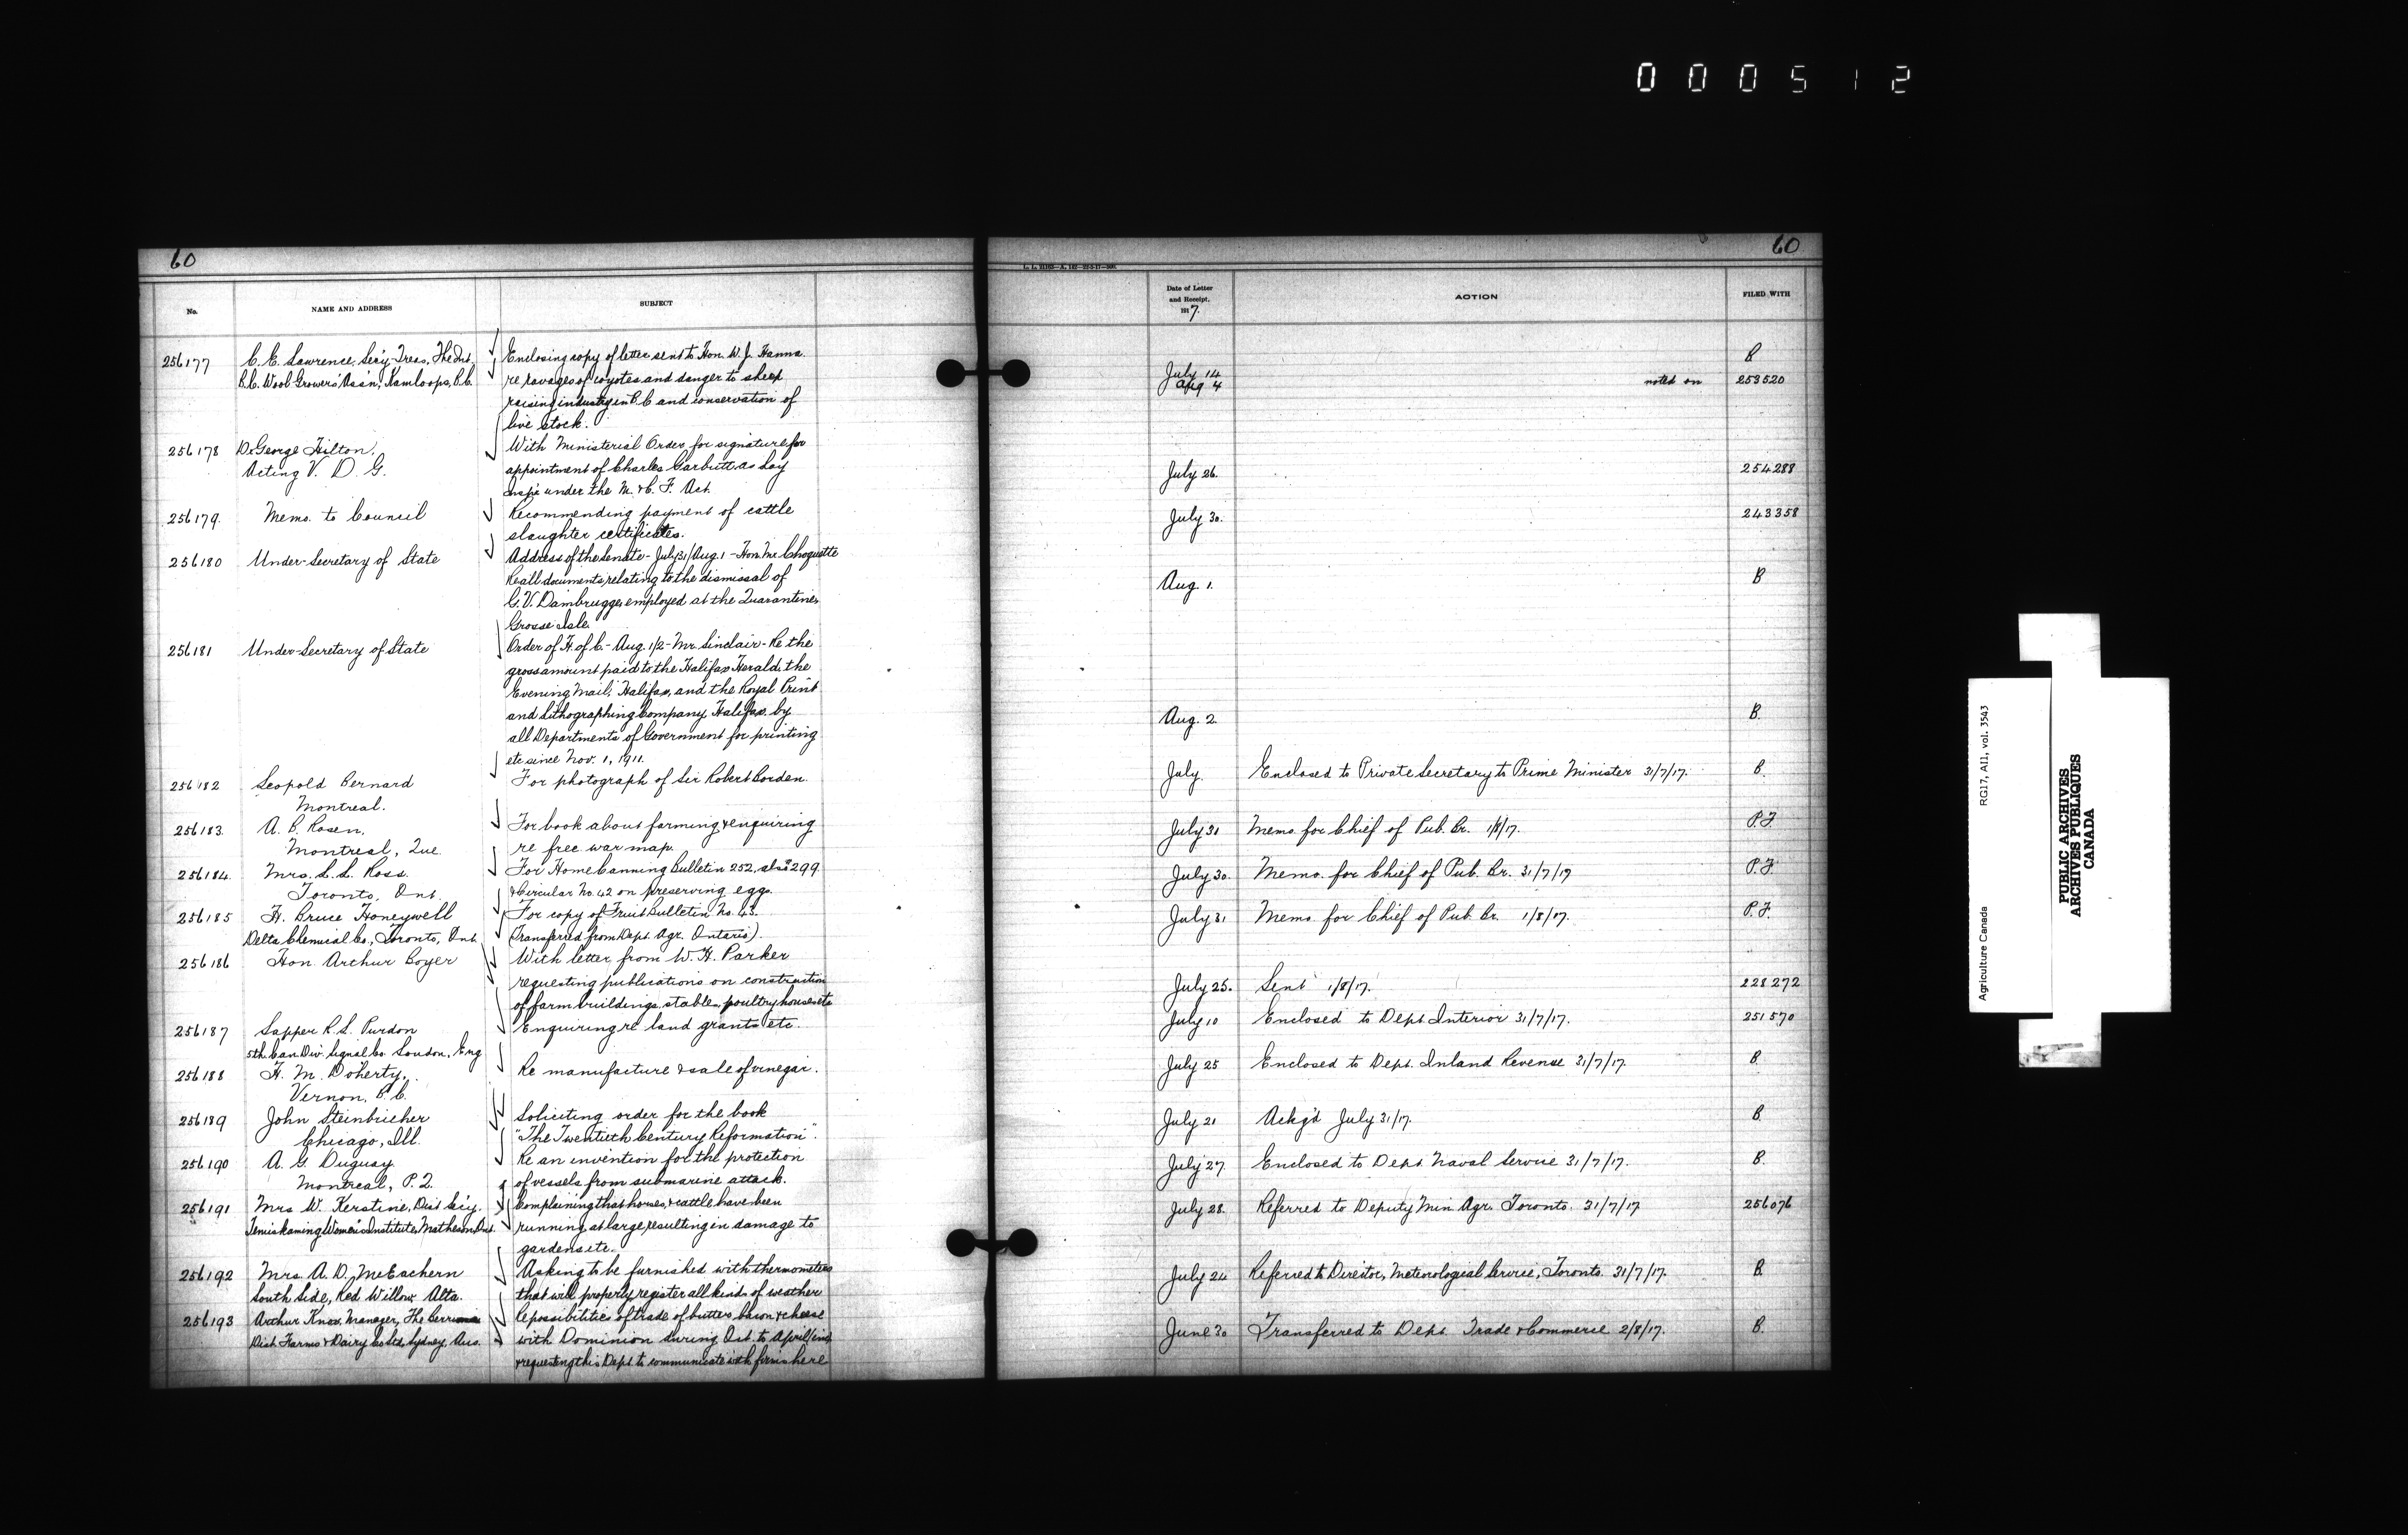 000512
60
No.
NAME AND ADDRESS
SUBJECT
256177
C. E. Lawrence, Sec'y-Treas, The Int.
B.C. Wool Growers' Ass'n, Kamloops, B.C.
Enclosing copy of letter sent to Hon. W. J. Hanna
re ravages of coyotes and danger to sheep
raising industry in B.C. and conservation of
live stock.
256178
Dr George Hilton,
Acting V. D. G.
With Ministerial Order for signature for
appointment of Charles Garbutt as Lay
Insp'r under the M. & C. F. Act.
256179.
Memo. to Council
Recommending payment of cattle
slaughter certificates.
256180
Under-Secretary of State
Address of the Senate - July 31/Aug. 1 - Hon. Mr. Choquette
Re all documents relating to the dismissal of
G. V. Dambrugge, employed at the Quarantine,
Grosse Isle.
256181
Under-Secretary of State
Order of H. of C. - Aug. 1/2 - Mr. Sinclair - Re the
gross amount paid to the Halifax Herald, the
Evening Mail, Halifax, and the Royal Print
and Lithographing Company, Halifax, by
all Departments of Government for printing
etc since Nov. 1, 1911.
256182
Leopold Bernard
Montreal.
For photograph of Sir Robert Borden.
256183.
A. B. Rosen,
Montreal, Que.
For book about farming & enquiring
re free war map.
256184.
Mrs. L. L. Ross.
Toronto, Ont.
For Home Canning Bulletin 252, also 299.
& Circular No. 42 on preserving eggs.
256185
H. Bruce Honeywell
Delta Chemical Co., Toronto, Ont.
For copy of Fruit Bulletin No. 43.
(Transferred from Dept. Agr. Ontario).
256186
Hon Arthur Boyer
With letter from W. H. Parker
requesting publications on construction
of farm buildings, stables, poultry houses etc
256187
Sapper R. S. Purdon
5th. Can. Div. Signal Co. London, Eng
Enquiring re land grants etc.
256188
H. M. Doherty,
Vernon, B.C.
Re manufacture & sale of vinegar.
256189
John Steinbricher
Chicago, Ill.
Soliciting order for the book
"The Twentieth Century Reformation".
256190
A. G. Duguay
Montreal, P.Q.
Re an invention for the protection
of vessels from submarine attack.
256191
Mrs W. Kerstine, Dist Sec'y.
Temiskaming Women's Institute, Matheson, Ont.
Complaining that horses & cattle have been
running at large, resulting in damage to
gardens etc.
256192
Mrs. A. D. McEachern
South Side, Red Willow Alta.
Asking to be furnished with thermometers
that will properly register all kinds of weather
256193
Arthur Knox, Manager, The
Dist. Farms & Dairy Co Ltd, Sydney, Aus.
Re possibilities of trade of butter, bacon & cheese
with Dominion during Oct. to April
& requesting this Dept. to communicate with firms here
60
Date of Letter
and Receipt.
1917.
ACTION
FILED WITH
July 14
Aug 4
noted on
B
253520
July 26.
254288
July 30.
243358
Aug. 1.
B
Aug. 2
B.
July
Enclosed to Private Secretary to Prime Minister 31/7/17.
B.
July 31
Memo. for Chief of Pub. Br. 1/8/17.
P.F.
July 30.
Memo. for Chief of Pub. Br. 31/7/17
P.F.
July 31
Memo. for Chief of Pub. Br. 1/8/17.
P.F.
July 25.
Sent 1/8/17.
228272
July 10
Enclosed to Dept. Interior 31/7/17.
251570
July 25
Enclosed to Dept. Inland Revenue 31/7/17.
B.
July 21
Ackg'd July 31/17.
B.
July 27.
Enclosed to Dept. Naval Service 31/7/17.
B.
July 28.
Referred to Deputy Min. Agr. Toronto. 31/7/17
256076
July 24
Referred to Director, Meteorological Service, Toronto. 31/7/17.
B.
June 30
Transferred to Dept. Trade & Commerce 2/8/17.
B.
Agriculture Canada
RG17, AII, vol. 3543
PUBLIC ARCHIVES
ARCHIVES PUBLIQUES
CANADA